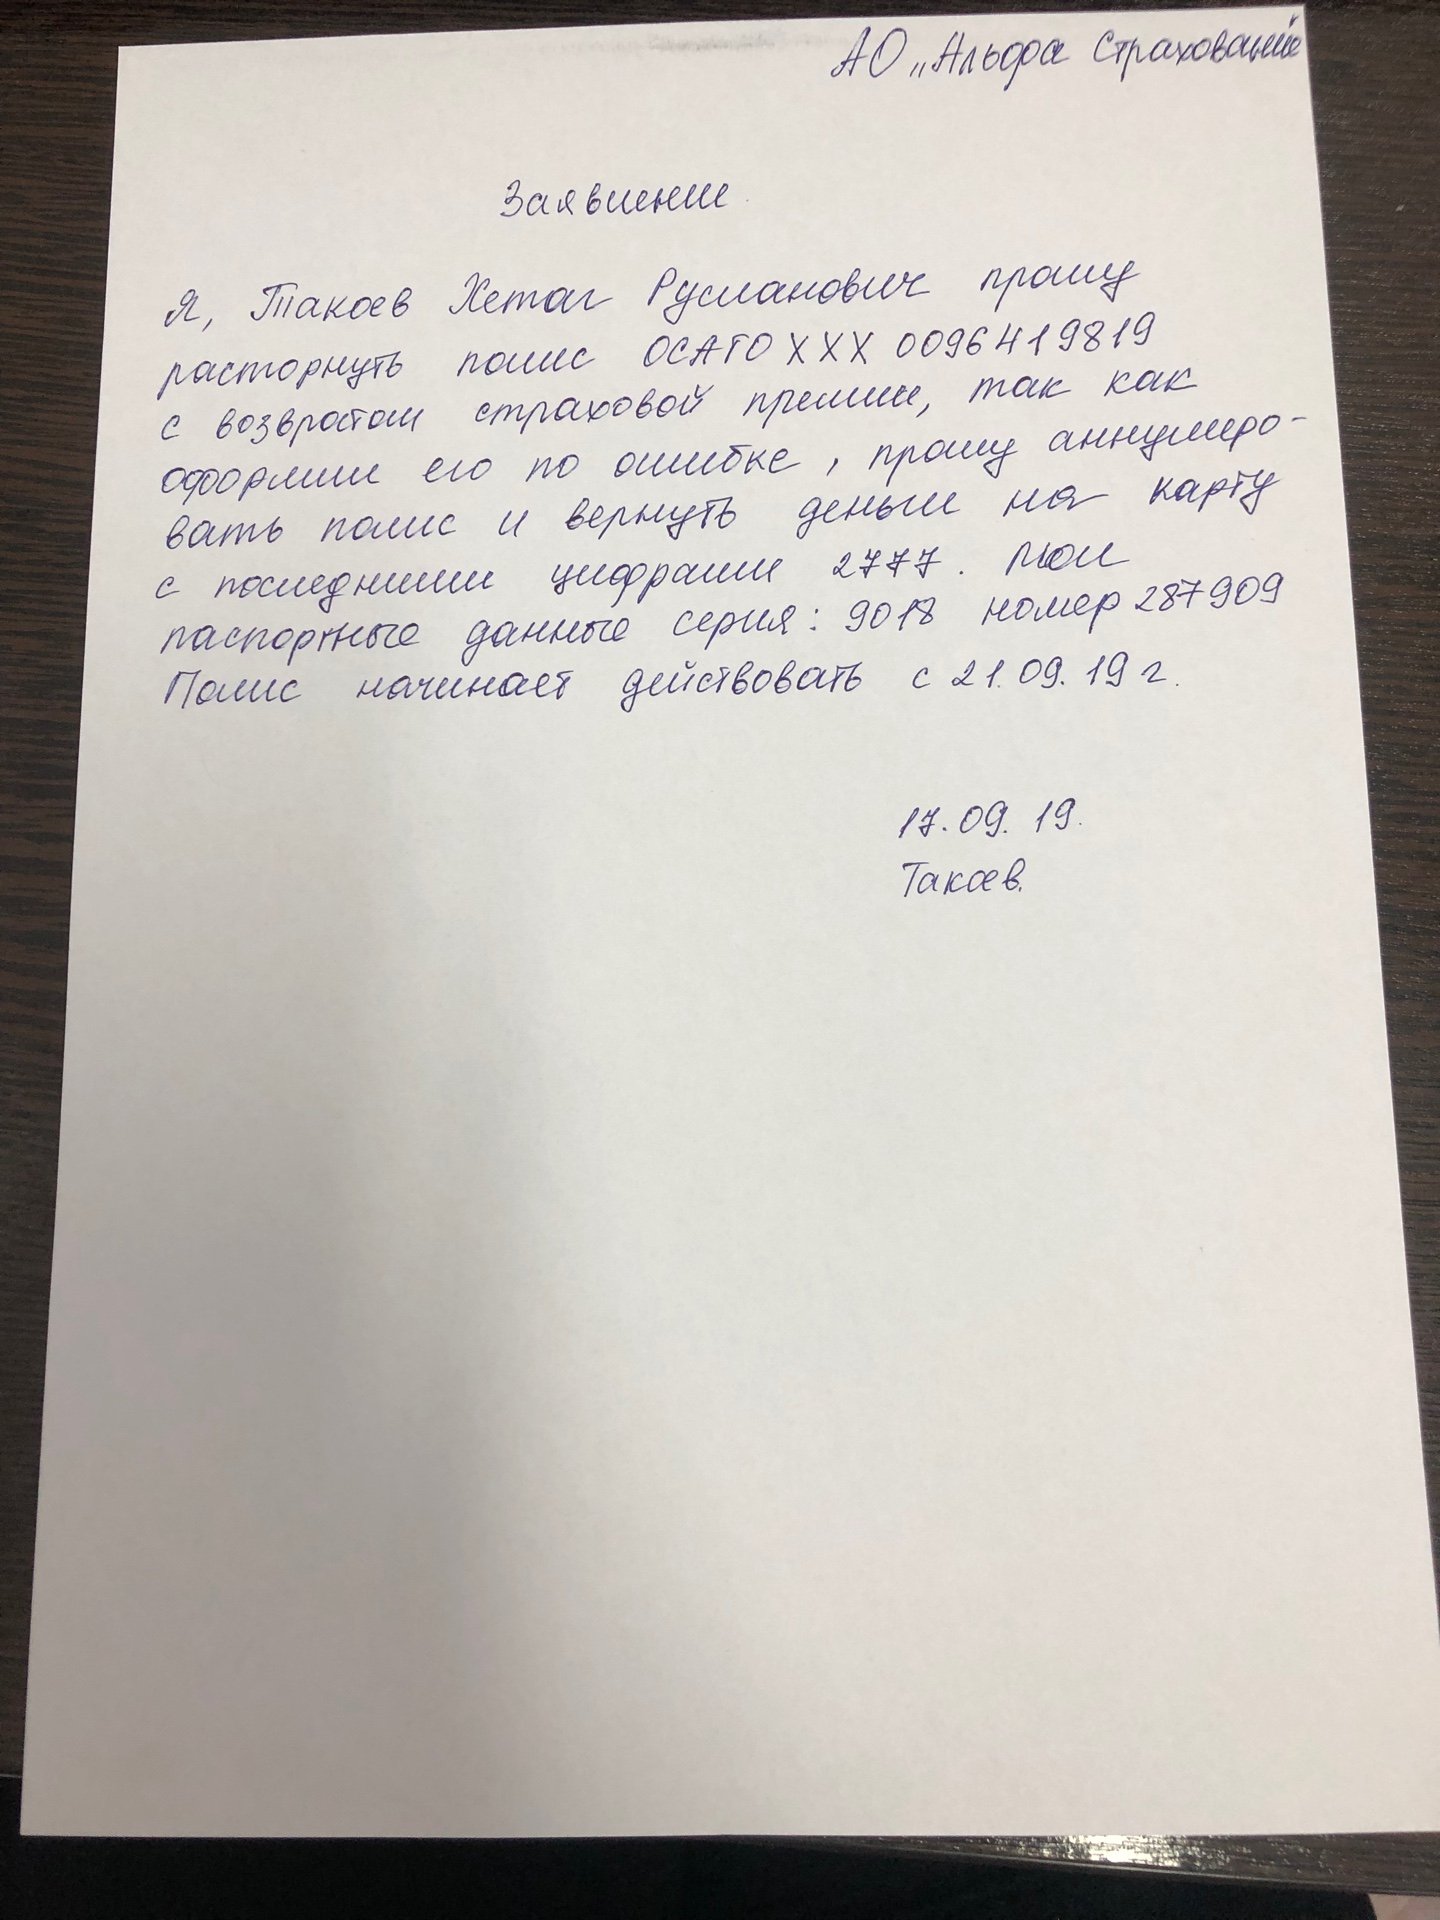 АО „Альфа Страхование"
Заявление
Я, Такаев Хетаг Русланович прошу
расторгнуть полис ОСАГО ХХХ 0096419819
с возвратом страховой премии, так как
оформил его по ошибке, прошу аннулиро-
вать полис и вернуть деньги на карту
с последними цифрами 2777. Мои
паспортные данные серия: 9018 номер 287909
Полис начинает действовать с 21.09.19 г.
17.09.19.
Такаев.